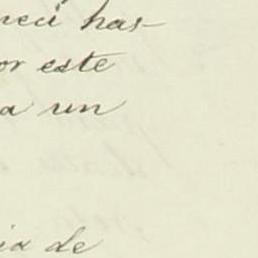 neci has-
or este
a un
ia de